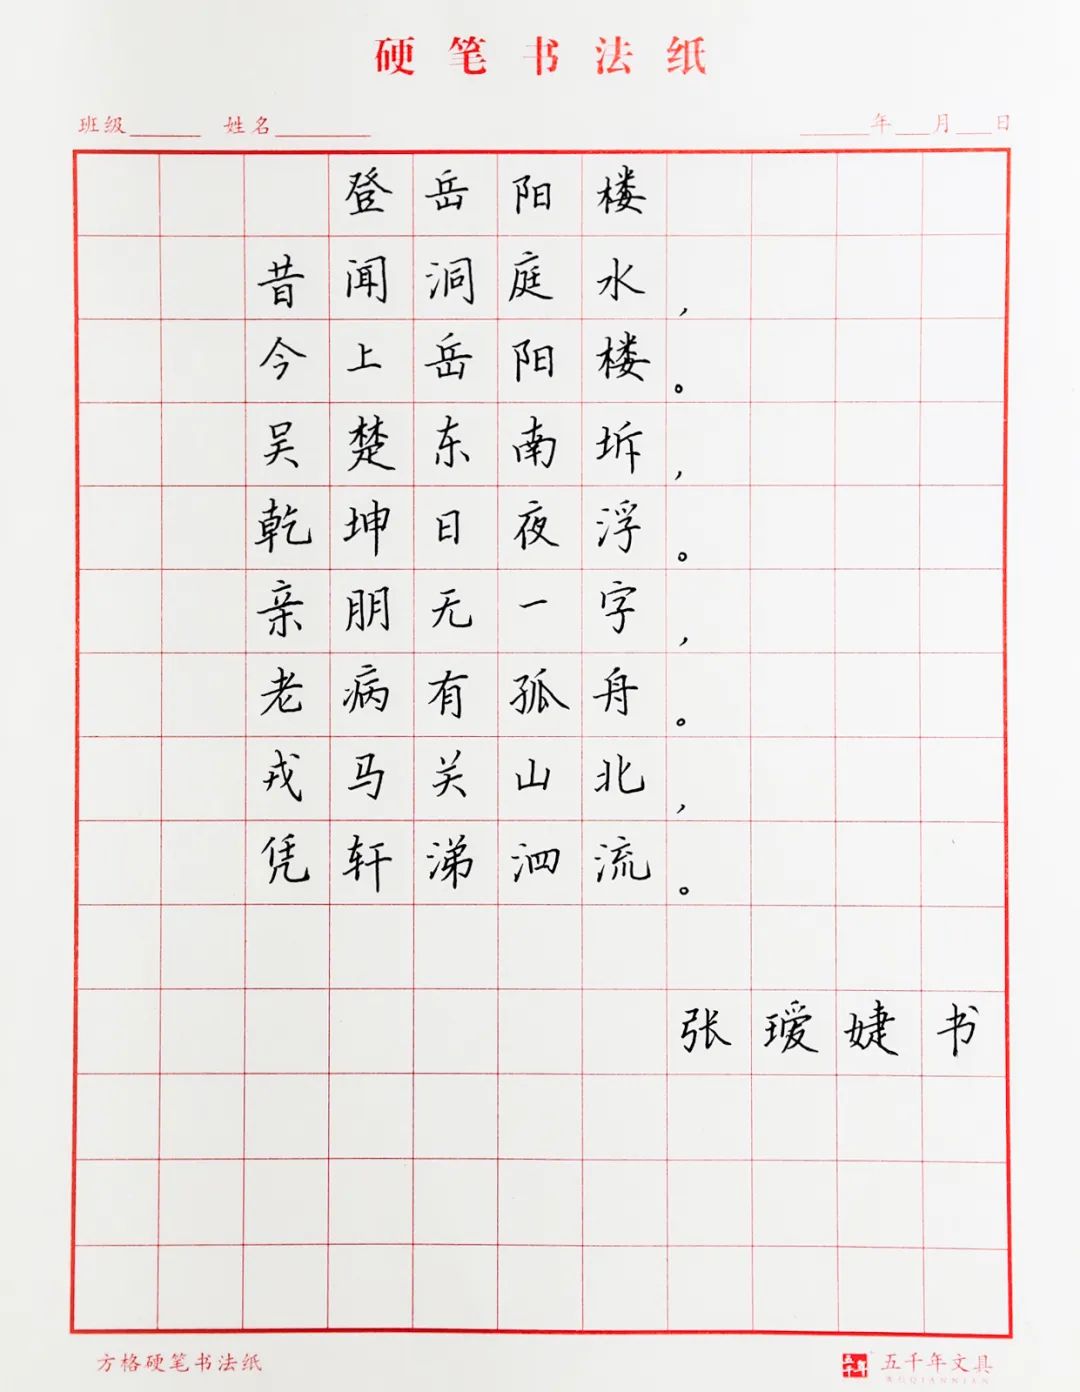 硬笔书法纸
班级 姓名 年 月 日
登岳阳楼
昔闻洞庭水，
今上岳阳楼。
吴楚东南坼，
乾坤日夜浮。
亲朋无一字，
老病有孤舟。
戎马关山北，
凭轩涕泗流。
张瑷婕书
方格硬笔书法纸
五千年 五千年文具
WUQIANNIAN